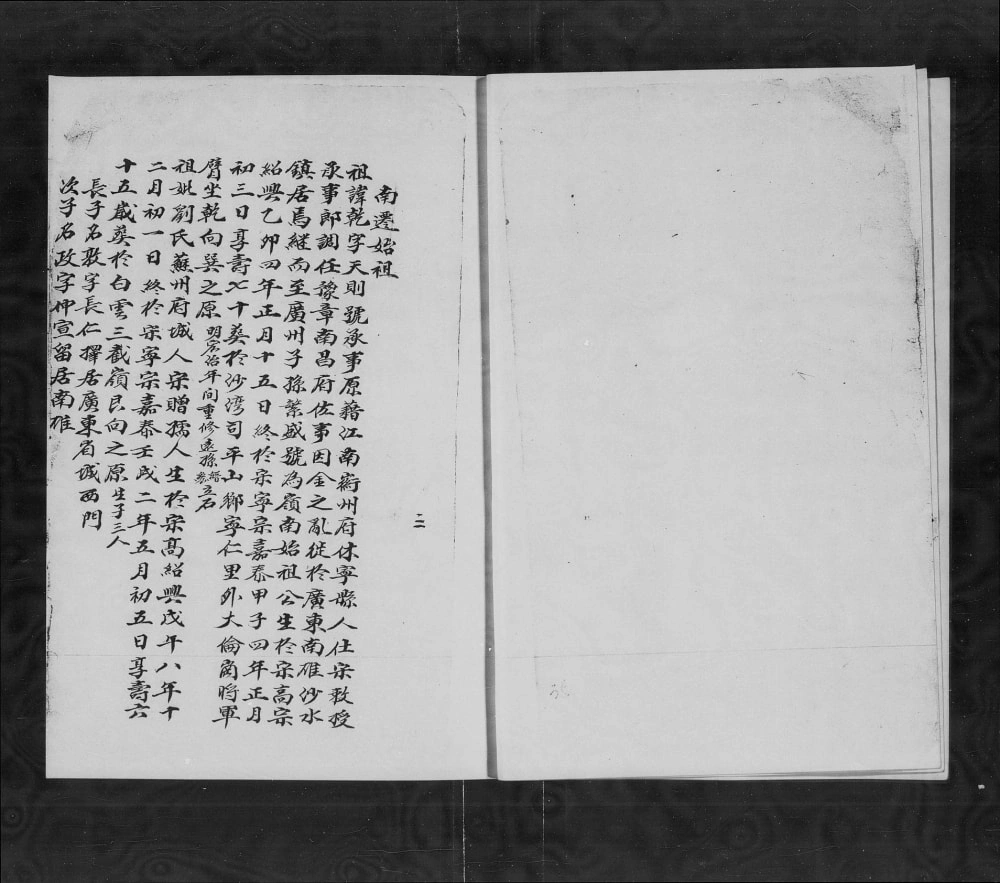 南遷始祖
祖諱乾字天則號承事原藉江南衢州府休寧縣人仕宋敕授
承事郎調任豫章南昌府佐事因金之亂徙於廣東南雄沙水
鎮居焉繼而至廣州子孫繁盛號為嶺南始祖公生於宋高宗
紹興乙卯四年正月十五日終於宋寧宗嘉泰甲子四年正月
初三日享壽七十葬於沙湾司平山鄉寧仁里外大倫崗將軍
臂坐乾向巽之原 年间重修遠孫 立石
祖妣劉氏蘇州府城人宋贈孺人生於宋高紹興戊午八年十
二月初一日終於宋寧宗嘉泰壬戌二年五月初五日享壽六
十五歲葬於白雲三截嶺艮向之原生子三人
長子名敦字長仁擇居廣東省城西門
次子名政字仲宣留居南雄
二